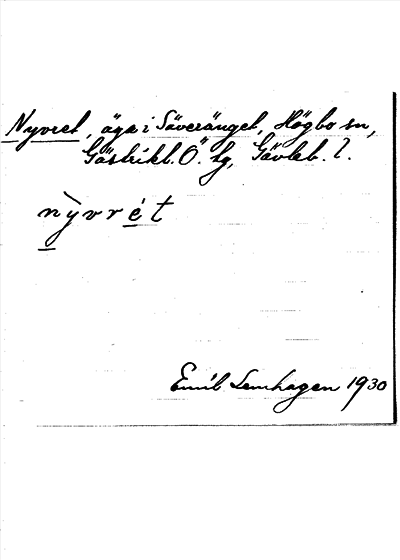 Nyvret, äga i Säveränget, Högbo sn,
Gästrikl. Ö. tg, Gävleb. l.
nỳvrét
Emil Lemhagen 1930